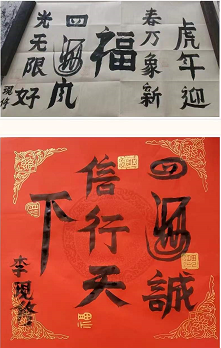 虎年迎
春万象新
福
四海风
光无限
好
四海誠
信行天
下
李現修